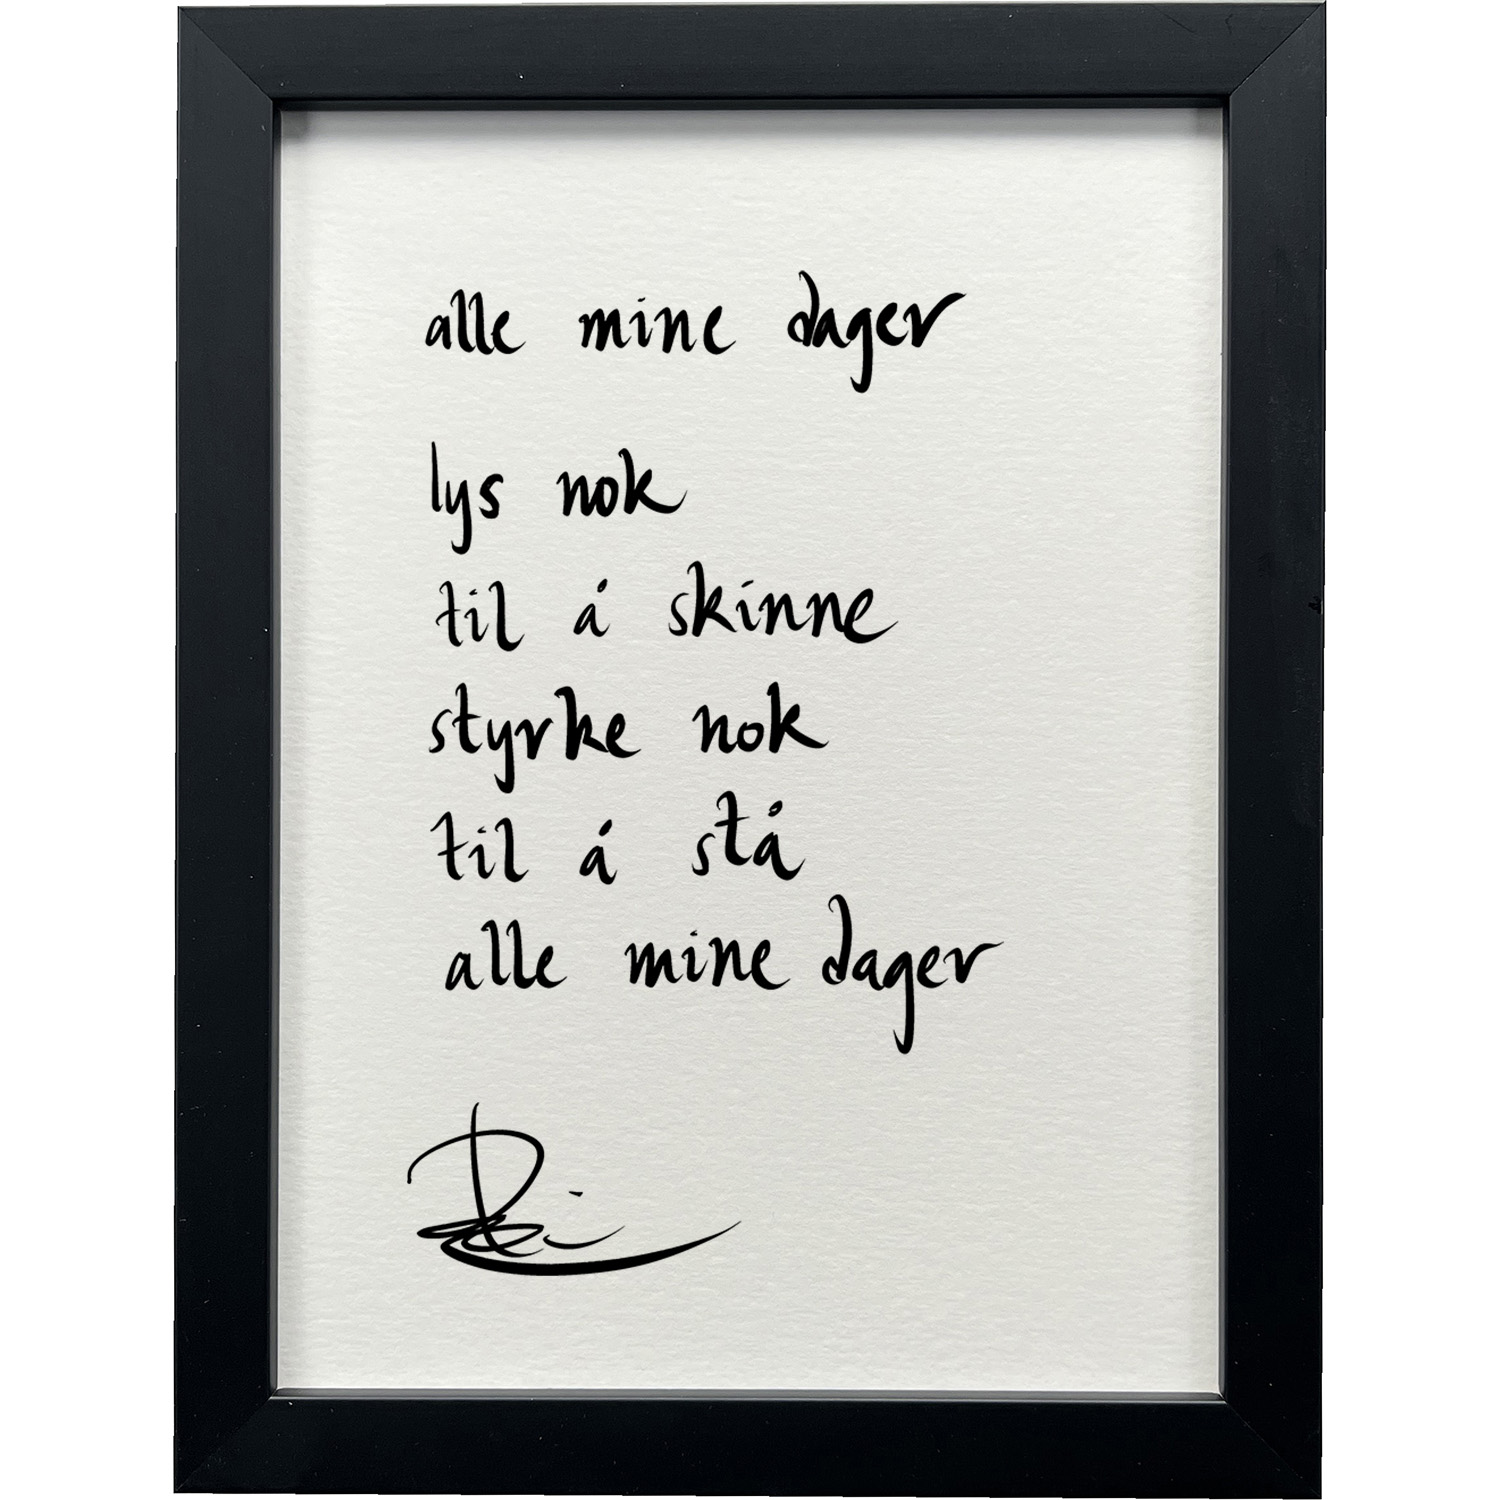 alle mine dager
lys nok
til å skinne
styrke nok
til å stå
alle mine dager